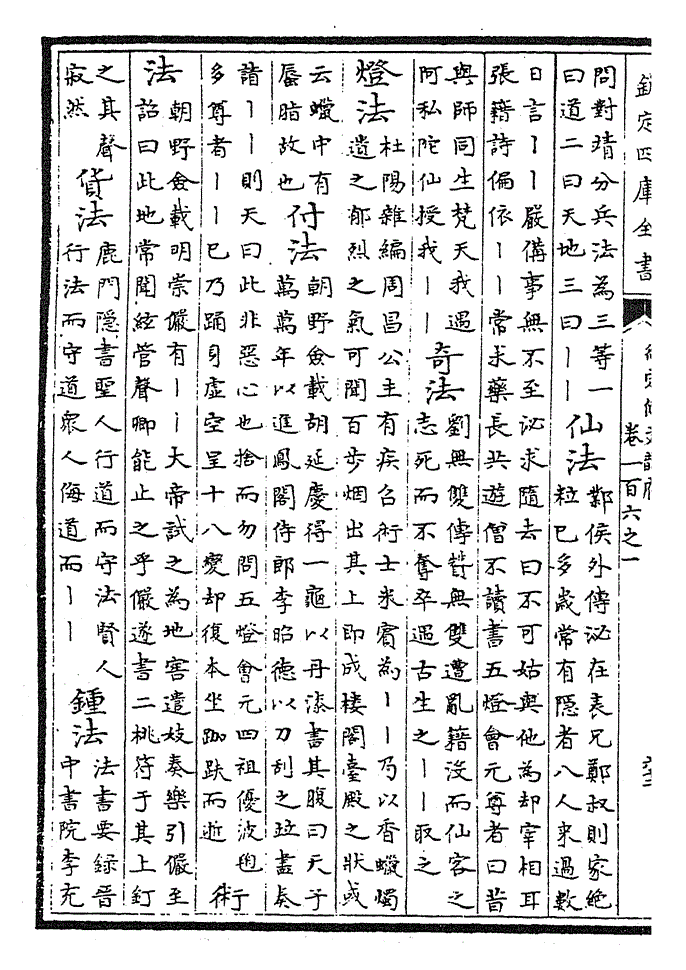 欽定四庫全書
御定佩文韻府
卷一百六之一
問對靖分兵法為三等一
曰道二曰天地三曰丨丨
仙法
鄴侯外傳泌在表兄鄭叔則家絶
粒已多歲常有隱者八人來過數
日言丨丨嚴備事無不至泌求隨去曰不可姑與他為却宰相耳
張籍詩偏依丨丨常求藥長共遊僧不讀書五燈會元尊者曰昔
與師同生梵天我遇
阿私陀仙授我丨丨
奇法
劉無雙傳聟無雙遭亂籍没而仙客之
志死而不奪卒遇古生之丨丨取之
燈法
杜陽雜編周昌公主有疾召術士米賔為丨丨乃以香蠟燭
遺之郁烈之氣可聞百步烟出其上即成楼閣臺殿之狀或
云蠟中有
蜃脂故也
付法
朝野僉載胡延慶得一龜以丹漆書其腹曰天子
萬萬年以進鳳閣侍郎李昭德以刀刮之竝盡奏
請丨丨則天曰此非惡心也捨而勿問五燈會元四祖優波毱
多尊者丨丨已乃踊身虛空呈十八變却復本坐跏趺而逝
術
法
朝野僉載明崇儼有丨丨大帝試之為地窖遣妓奏樂引儼至
詔曰此地常聞絃管聲卿能止之乎儼遂書二桃符于其上釘
之其聲
寂然
貨法
鹿門隱書聖人行道而守法賢人
行法而守道衆人侮道而丨丨
鍾法
法書要録晉
中書院李充